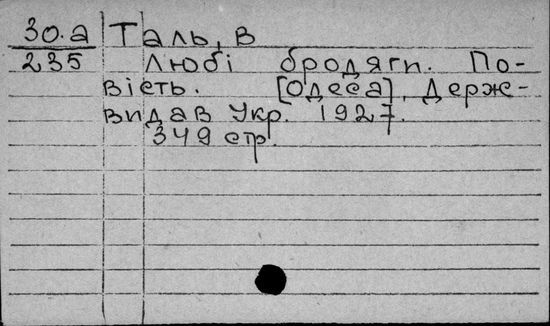 30.а Таль, В
235 Любі бродяги. По-
вість. [Одеса], Держ-
видав Укр. 1927.
349 стр.